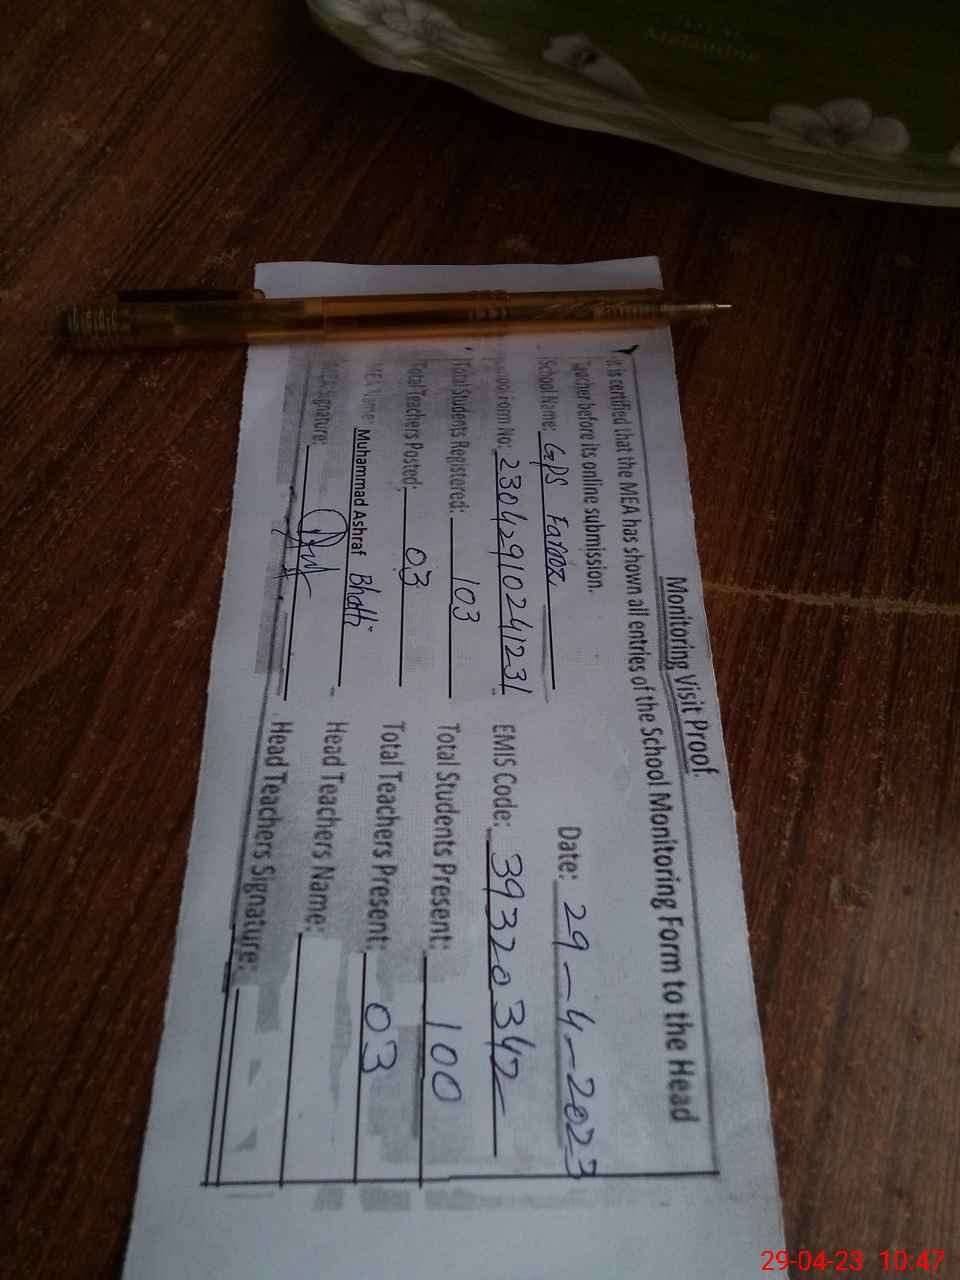 Monitoring Visit Proof.
It is certified that the MEA has shown all entries of the School Monitoring Form to the Head
Teacher before its online submission.
Date: 29-4-2023
School Name: GPS Faroz
Form No: 23042910241231 EMIS Code: 39320342
Total Students Registered: 103 Total Students Present: 100
Total Teachers Posted: 03 Total Teachers Present: 03
MEA Name: Muhammad Ashraf Bhatti Head Teachers Name:
MEA Signature: Head Teachers Signature:
29-04-23 10:47